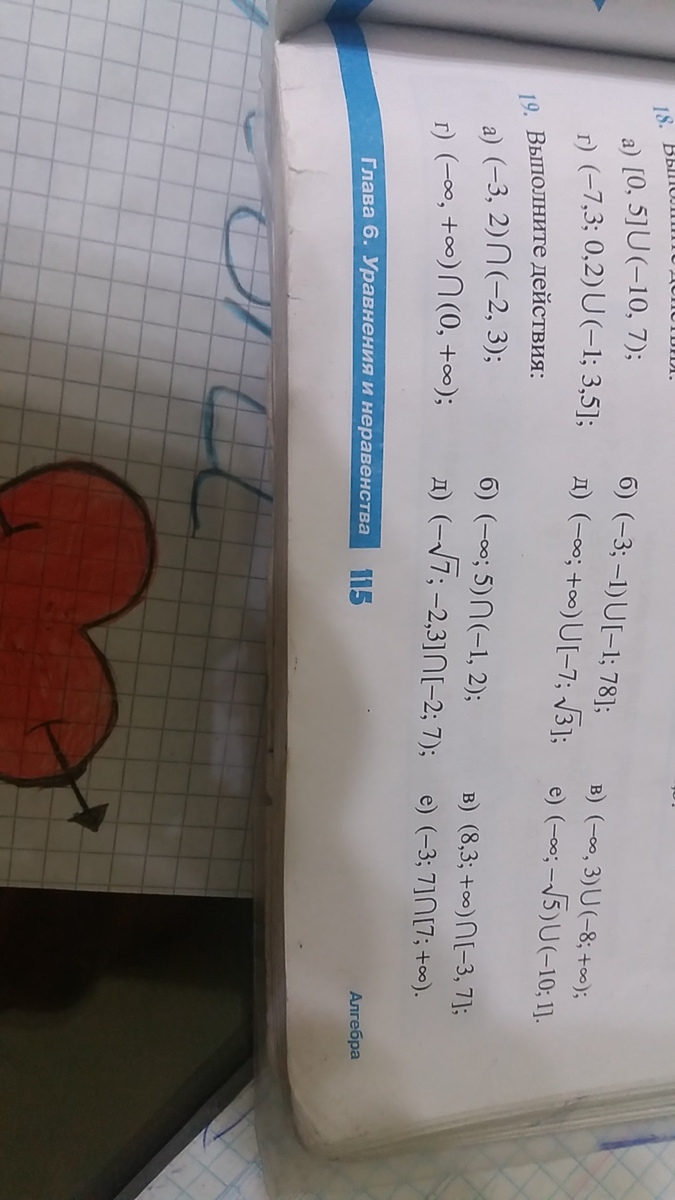 18. Выполните действия:
а) [0, 5]∪(−10, 7); б) (−3; −1)∪[−1; 78]; в) (−∞, 3)∪(−8; +∞);
г) (−7,3; 0,2)∪(−1; 3,5]; д) (−∞; +∞)∪[−7; √3]; е) (−∞; −√5)∪(−10; 1].
19. Выполните действия:
а) (−3, 2)∩(−2, 3); б) (−∞; 5)∩(−1, 2); в) (8,3; +∞)∩[−3, 7];
г) (−∞, +∞)∩(0, +∞); д) (−√7; −2,3]∩[−2; 7); е) (−3; 7]∩[7; +∞).
Глава 6. Уравнения и неравенства 115 Алгебра